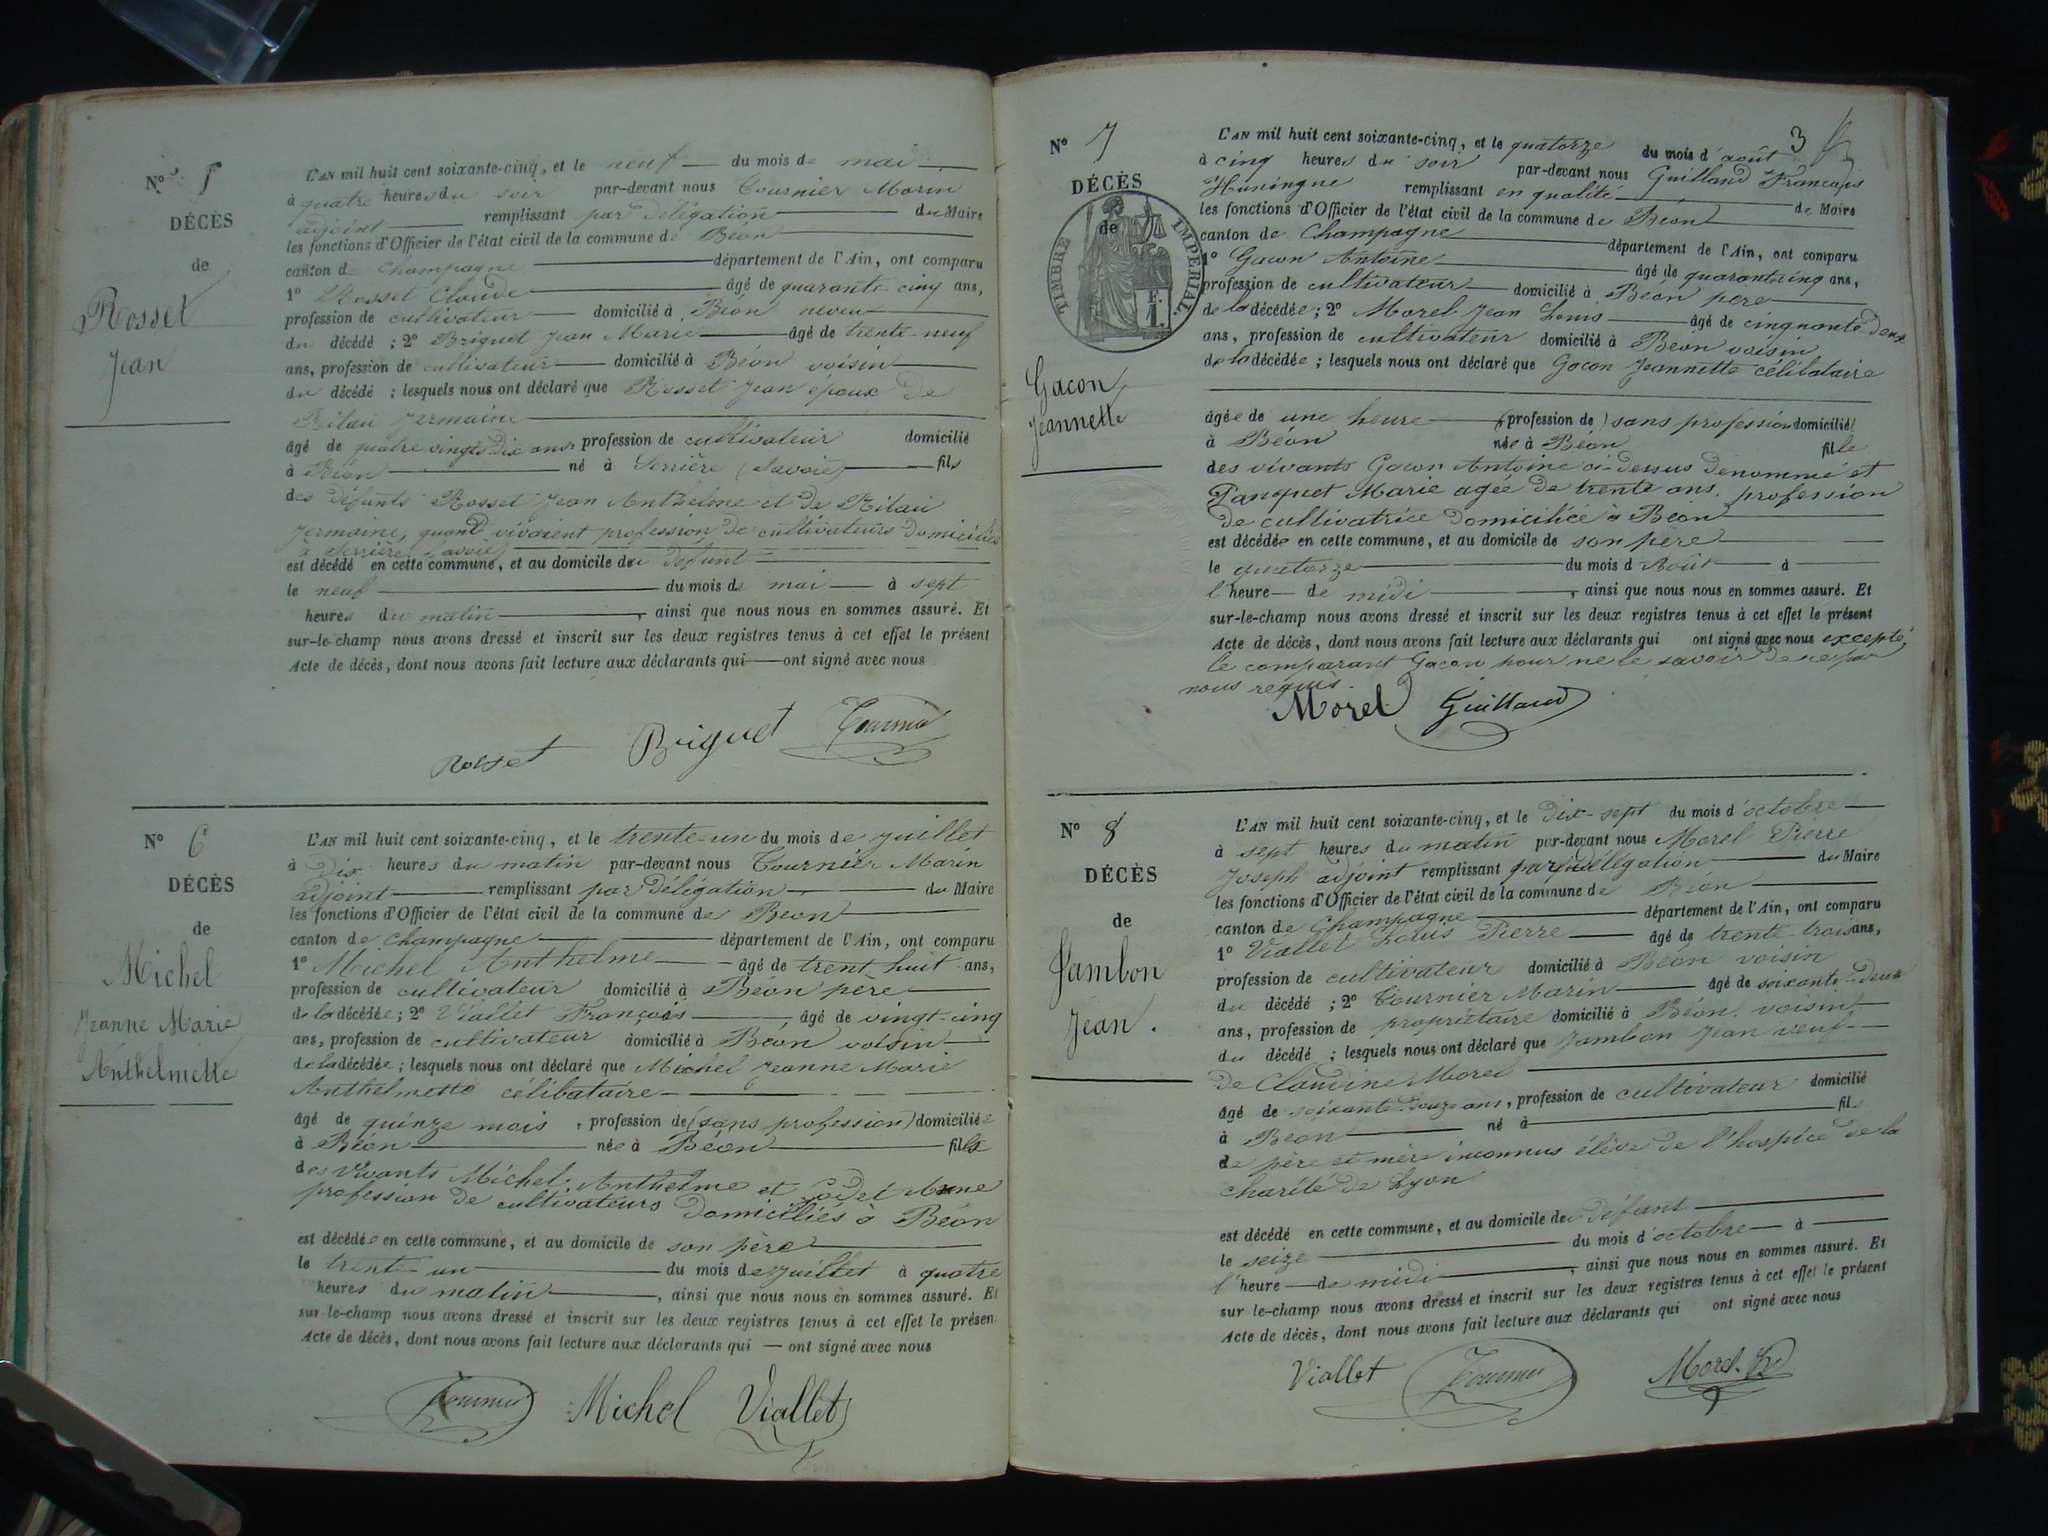 N° 5
DÉCÈS
de
Rosset
Jean
L'AN mil huit cent soixante-cinq, et le neuf du mois de mai
à quatre heures du soir par-devant nous Tournier Marin
adjoint remplissant par délégation du Maire
les fonctions d'Officier de l'état civil de la commune de Béon
canton de Champagne département de l'Ain, ont comparu
1° Rosset Claude âgé de quarante-cinq ans,
profession de cultivateur domicilié à Béon neveu
du décédé ; 2° Briguet Jean Marie âgé de trente-neuf
ans, profession de cultivateur domicilié à Béon voisin
du décédé ; lesquels nous ont déclaré que Rosset Jean epoux de
Rilau Jermaine
âgé de quatre vingts dix ans profession de cultivateur domicilié
à Béon né à Serrière (Savoie) fils
des défunts Rosset Jean Anthelme et de Rilau
Jermaine, quand vivaient profession de cultivateurs domiciliés
à Serrière (Savoie)
est décédé en cette commune, et au domicile du défunt
le neuf du mois de mai à sept
heures du matin, ainsi que nous nous en sommes assuré. Et
sur-le-champ nous avons dressé et inscrit sur les deux registres tenus à cet effet le présent
Acte de décès, dont nous avons fait lecture aux déclarants qui ont signé avec nous
Rosset Briguet Tournier
N° 6
DÉCÈS
de
Michel
Jeanne Marie
Anthelmette
L'AN mil huit cent soixante-cinq, et le trente-un du mois de Juillet
à dix heures du matin par-devant nous Tournier Marin
adjoint remplissant par délégation du Maire
les fonctions d'Officier de l'état civil de la commune de Béon
canton de Champagne département de l'Ain, ont comparu
1° Michel Anthelme âgé de trent huit ans,
profession de cultivateur domicilié à Béon père
de la décédée ; 2° Viallet François âgé de vingt-cinq
ans, profession de cultivateur domicilié à Béon voisin
de la décédée ; lesquels nous ont déclaré que Michel Jeanne Marie
Anthelmette célibataire
âgé de quinze mois, profession de (sans profession) domiciliée
à Béon née à Béon fille
des vivants Michel Anthelme et Godet Anne
profession de cultivateurs domiciliés à Béon
est décédée en cette commune, et au domicile de son père
le trente-un du mois de Juillet à quatre
heures du matin, ainsi que nous nous en sommes assuré. Et
sur-le-champ nous avons dressé et inscrit sur les deux registres tenus à cet effet le présen
Acte de décès, dont nous avons fait lecture aux déclarants qui ont signé avec nous
Tournier Michel Viallet
3
N° 7
DÉCÈS
de
TIMBRE IMPÉRIAL
Gacon
Jeannette
L'AN mil huit cent soixante-cinq, et le quatorze du mois d'août
à cinq heures du soir par-devant nous Guilland François
Huningue remplissant en qualité de Maire
les fonctions d'Officier de l'état civil de la commune de Béon
canton de Champagne département de l'Ain, ont comparu
1° Gacon Antoine âgé de quarante cinq ans,
profession de cultivateur domicilié à Béon père
de la décédée ; 2° Morel Jean Louis âgé de cinquante-deux
ans, profession de cultivateur domicilié à Béon voisin
de la décédée ; lesquels nous ont déclaré que Gacon Jeannette célibataire
âgée de une heure (profession de) sans profession domicilié
à Béon née à Béon fille
des vivants Gacon Antoine ci-dessus dénommé et
Panquet Marie agée de trente ans, profession
de cultivatrice domiciliée à Béon
est décédée en cette commune, et au domicile de son père
le quatorze du mois d'Août à
l'heure de midi, ainsi que nous nous en sommes assuré. Et
sur-le-champ nous avons dressé et inscrit sur les deux registres tenus à cet effet le présent
Acte de décès, dont nous avons fait lecture aux déclarants qui ont signé avec nous excepté
le comparant Gacon pour ne le savoir de ce par
nous requis.
Morel Guilland
N° 8
DÉCÈS
de
Jambon
Jean.
L'AN mil huit cent soixante-cinq, et le dix-sept du mois d'octobre
à sept heures du matin par-devant nous Morel Pierre
Joseph adjoint remplissant par délégation du Maire
les fonctions d'Officier de l'état civil de la commune de Béon
canton de Champagne département de l'Ain, ont comparu
1° Viallet Louis Pierre âgé de trente-trois ans,
profession de cultivateur domicilié à Béon voisin
du décédé ; 2° Tournier Marin âgé de soixante-deux
ans, profession de propriétaire domicilié à Béon voisin
du décédé ; lesquels nous ont déclaré que Jambon Jean veuf
de Claudine Morel
âgé de soixante-douze ans, profession de cultivateur domicilié
à Béon né à fils
de père et mère inconnus élève de l'hospice de la
charité de Lyon
est décédé en cette commune, et au domicile du défunt
le seize du mois d'octobre à
l'heure de midi, ainsi que nous nous en sommes assuré. Et
sur le-champ nous avons dressé et inscrit sur les deux registres tenus à cet effet le présent
Acte de décès, dont nous avons fait lecture aux déclarants qui ont signé avec nous
Viallet Tournier Morel